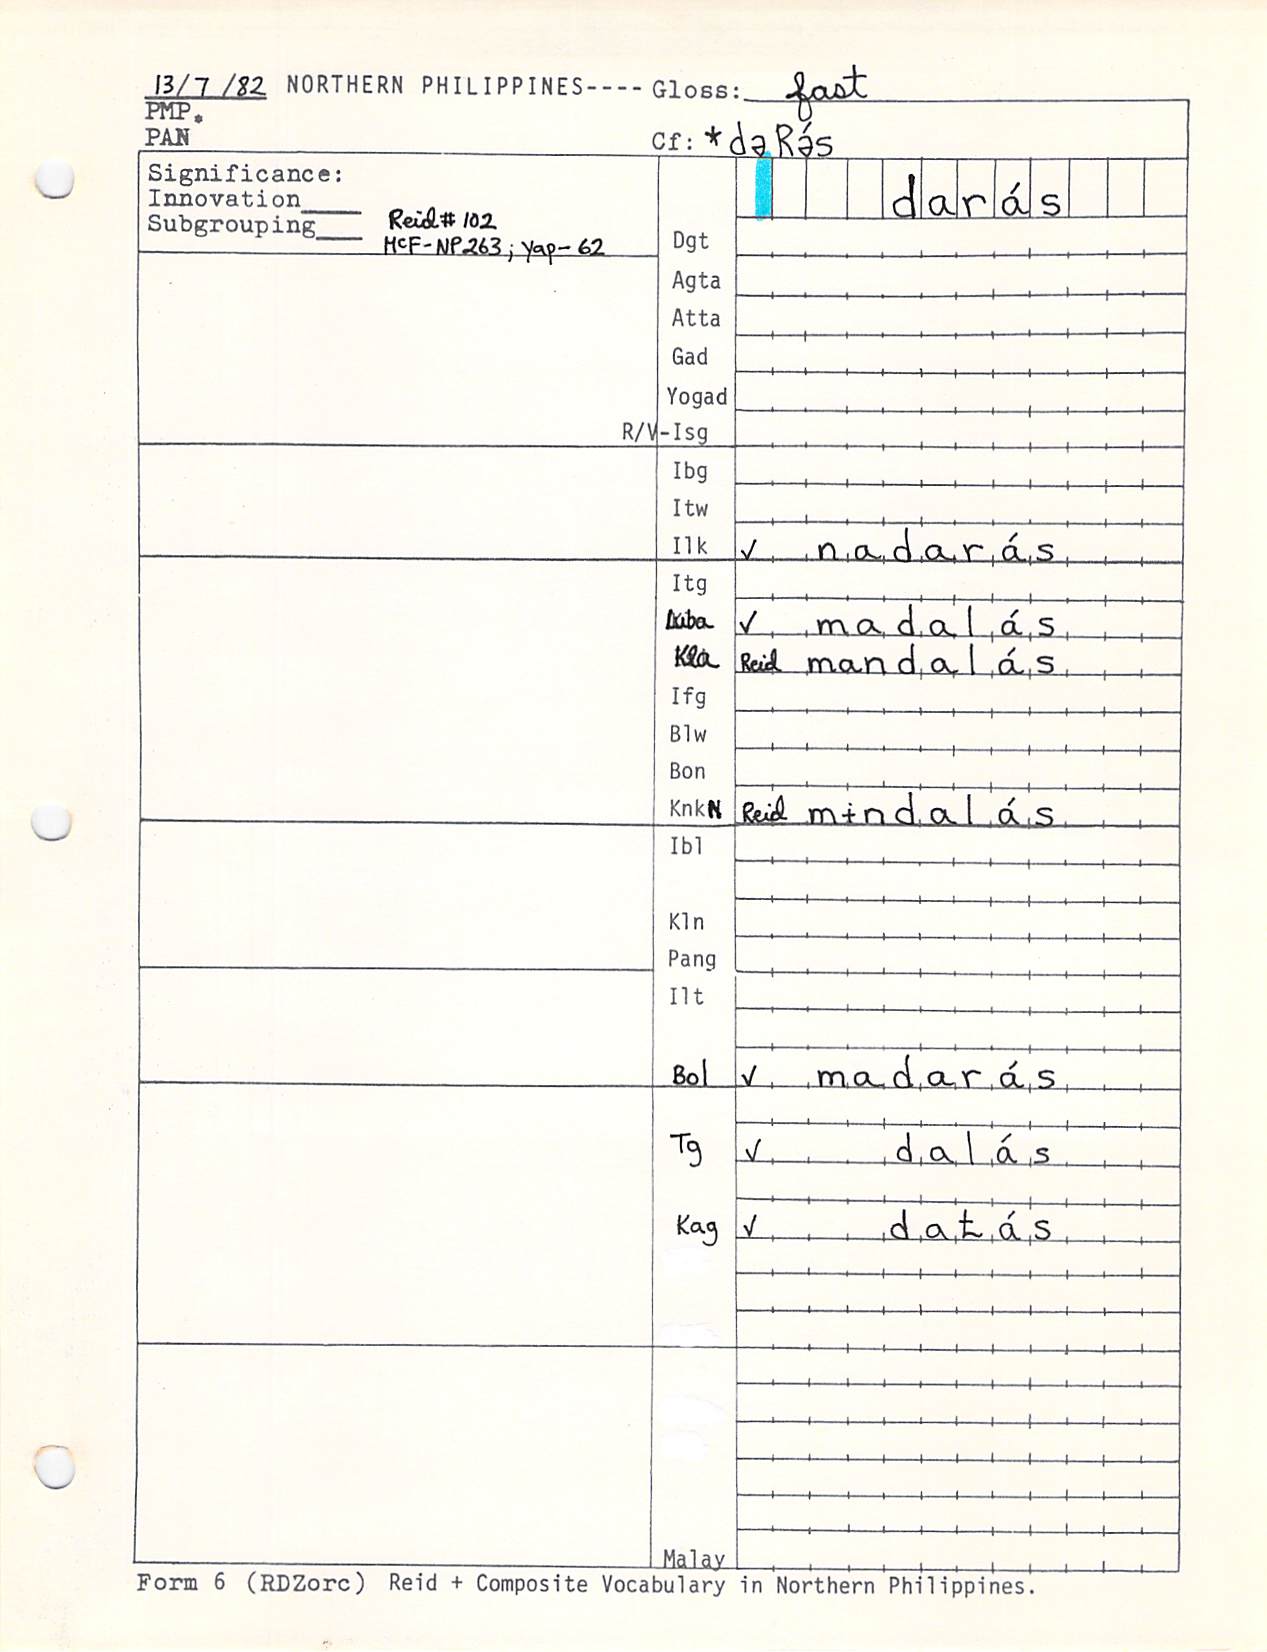 13/7/82 NORTHERN PHILIPPINES---- Gloss: fast
PMP.
PAN Cf: *dəRə́s
Significance:
Innovation____
Subgrouping____ Reid# 102
McF-NP263; Yap-62
darás
Dgt
Agta
Atta
Gad
Yogad
R/V-Isg
Ibg
Itw
Ilk ✓ nadarás
Itg
✓ madalás
Kla Reid mandalás
Ifg
Blw
Bon
KnkN Reid mɨndalás
Ibl
Kln
Pang
Ilt
Bol ✓ madarás
Tg ✓ dalás
Kag ✓
Malay
Form 6 (RDZorc) Reid + Composite Vocabulary in Northern Philippines.